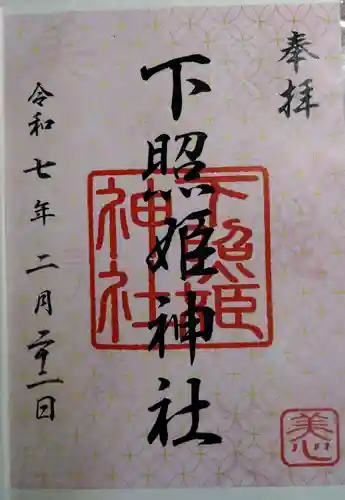 奉拝
下照姫神社
令和七年二月二十一日
下照姫神社
美心